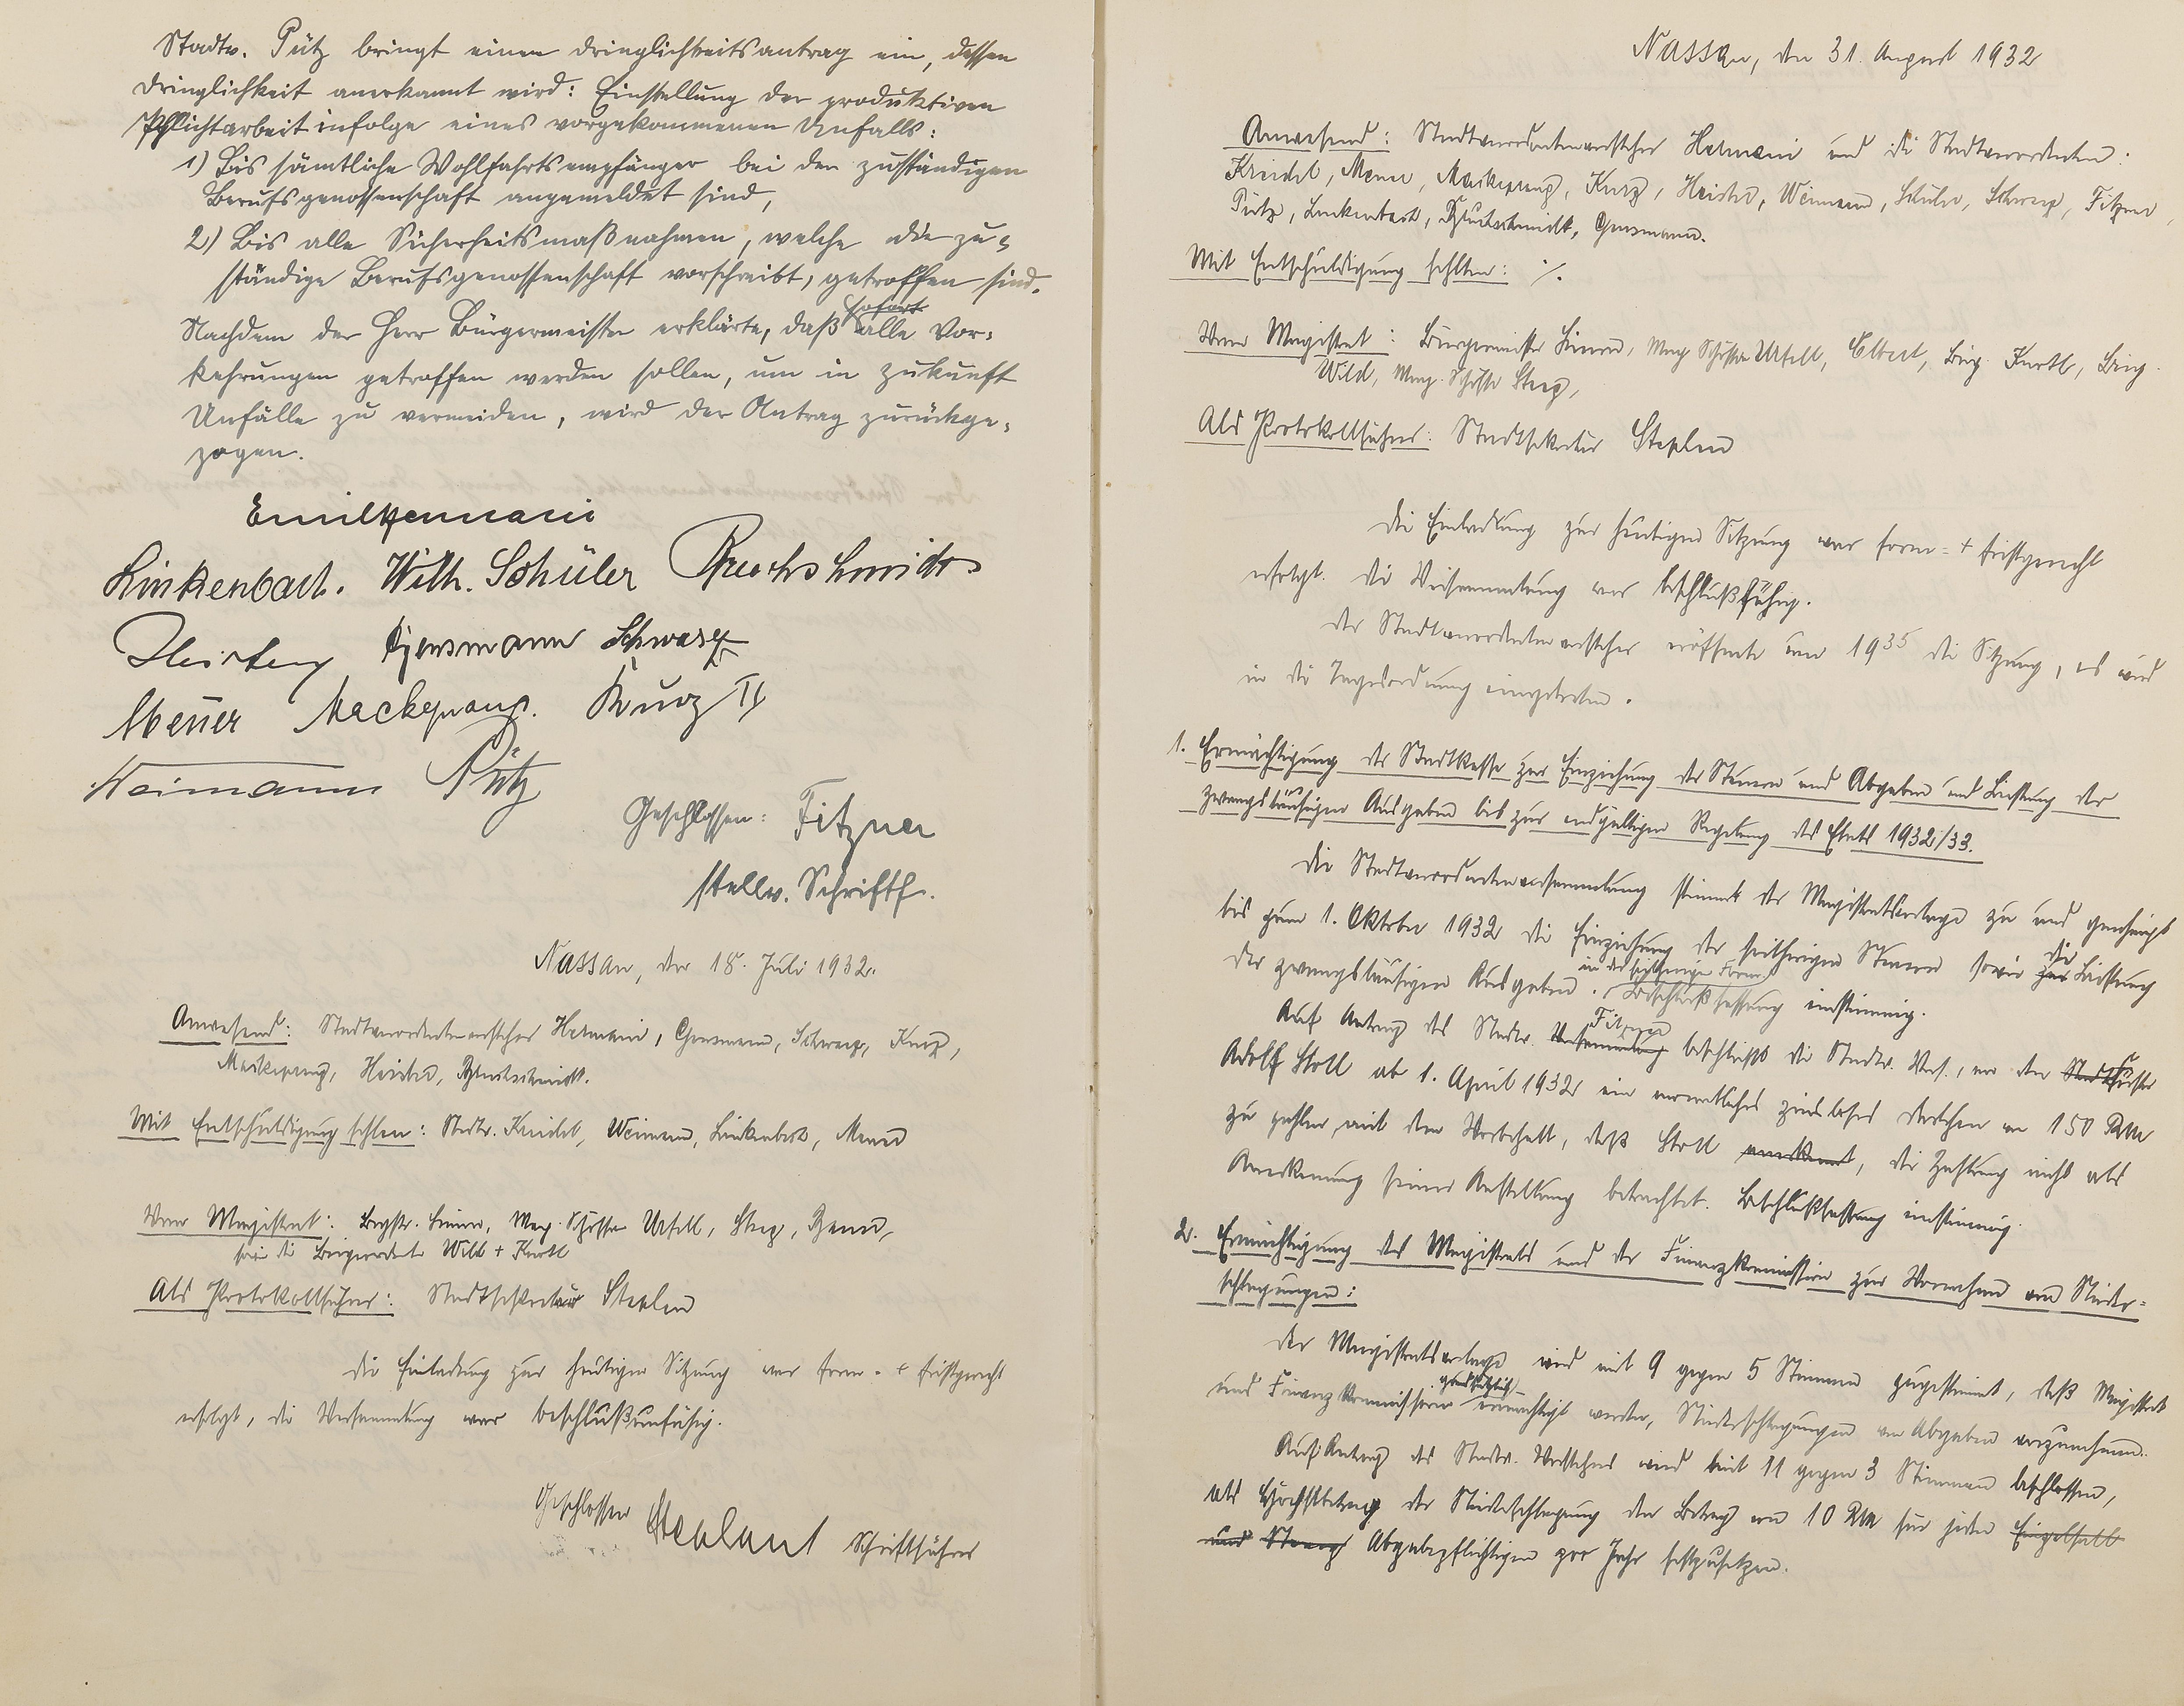 Stadtv. Pütz bringt einen Dringlichkeitsantrag ein, dessen
Dringlichkeit anerkannt wird: Einstellung der produktiven
Pflichtarbeit infolge eines vorgekommenen Unfalls:
1) Bis sämtliche Wohlfahrtsempfänger bei der zuständigen
Berufsgenossenschaft angemeldet sind,
2) Bis alle Sicherheitsmaßnahmen, welche die zu=
ständige Berufsgenossenschaft vorschreibt, getroffen sind.
Nachdem der Herr Bürgermeister erklärte, daß sofort alle Vor=
kehrungen getroffen werden sollen, um in Zukunft
Unfälle zu vermeiden, wird der Antrag zurückge=
zogen.
Emil Hermani
Linkenbach. Wilh. Schüler
Gensmann Schwarz
Meuer Mackeprang. Kurz II
Weimann Pütz
Geschlossen: Fitzner
stellv. Schriftf.
Nassau, den 18. Juli 1932.
Anwesend: Stadtverordnetenvorsteher Hermani, Gensmann, Schwarz, Kurz,
Mackeprang,
Mit Entschuldigung fehlen: Stadtv. Kreidel, Weimann, Linkenbach, Meuer
Vom Magistrat: Bgmstr. Mag. Schöffen Urfell,
sowie die Beigeordneten Wild +
Als Protokollführer: Stadtsekretär
Die Einladung zur heutigen Sitzung war form- + fristgerecht
erfolgt, die Versammlung war beschlußunfähig.
Geschlossen Schriftführer
Nassau, den 31. August 1932
Anwesend: Stadtverordnetenvorsteher Hermani und die Stadtverordneten:
Kreidel, Meuer, Mackeprang, Kurz, Weimann, Schüler, Schwarz, Fitzner,
Pütz, Linkenbach, Gensmann.
Mit Entschuldigung fehlten: ./.
Vom Magistrat: Bürgermeister Mag. Schöffen Urfell, Elbert, Beig. Beig.
Wild, Mag. Schöffe
Als Protokollführer: Stadtsekretär
Die Einladung zur heutigen Sitzung war form= + fristgerecht
erfolgt. Die Versammlung war beschlußfähig.
Der Stadtverordnetenvorsteher eröffnete um 19 35 die Sitzung, es wird
in die Tagesordnung eingetreten.
1. Ermächtigung der Stadtkasse zur Einziehung der Steuern und Abgaben und Leistung der
zwangsläufigen Ausgaben bis zur endgültigen Regelung des Etats 1932/33.
Die Stadtverordnetenversammlung stimmt der Magistratsvorlage zu und genehmigt
bis zum 1. Oktober 1932 die Einziehung der seitherigen Steuern sowie zur die Leistung
der zwangsläufigen Ausgaben. in der seitherigen Form Beschlußfassung einstimmig.
Auf Antrag des Stadtv. Versammlung Fitzner beschließt die Stadtv. Vers., an den Stadtförster
Adolf Stoll ab 1. April 1932 ein monatliches zinsloses Darlehen von 150 RM
zu zahlen, mit dem Vorbehalt, daß Stoll anerkennt, die Zahlung nicht als
Anerkennung seiner Anstellung betrachtet. Beschlußfassung einstimmig.
2. Ermächtigung des Magistrats und der Finanzkommission zur Vornahme von Nieder=
schlagungen:
Der Magistratsvorlage wird mit 9 gegen 5 Stimmen zugestimmt, daß Magistrat
und Finanzkommission grundsätzlich ermächtigt werden, Niederschlagungen von Abgaben vorzunehmen.
Auf Antrag des Stadtv. Vorstehers wird mit 11 gegen 3 Stimmen beschlossen,
als Höchstbetrag der Niederschlagung den Betrag von 10 RM für jeden Einzelfall
und Abgabepflichtigen pro Jahr festzusetzen.